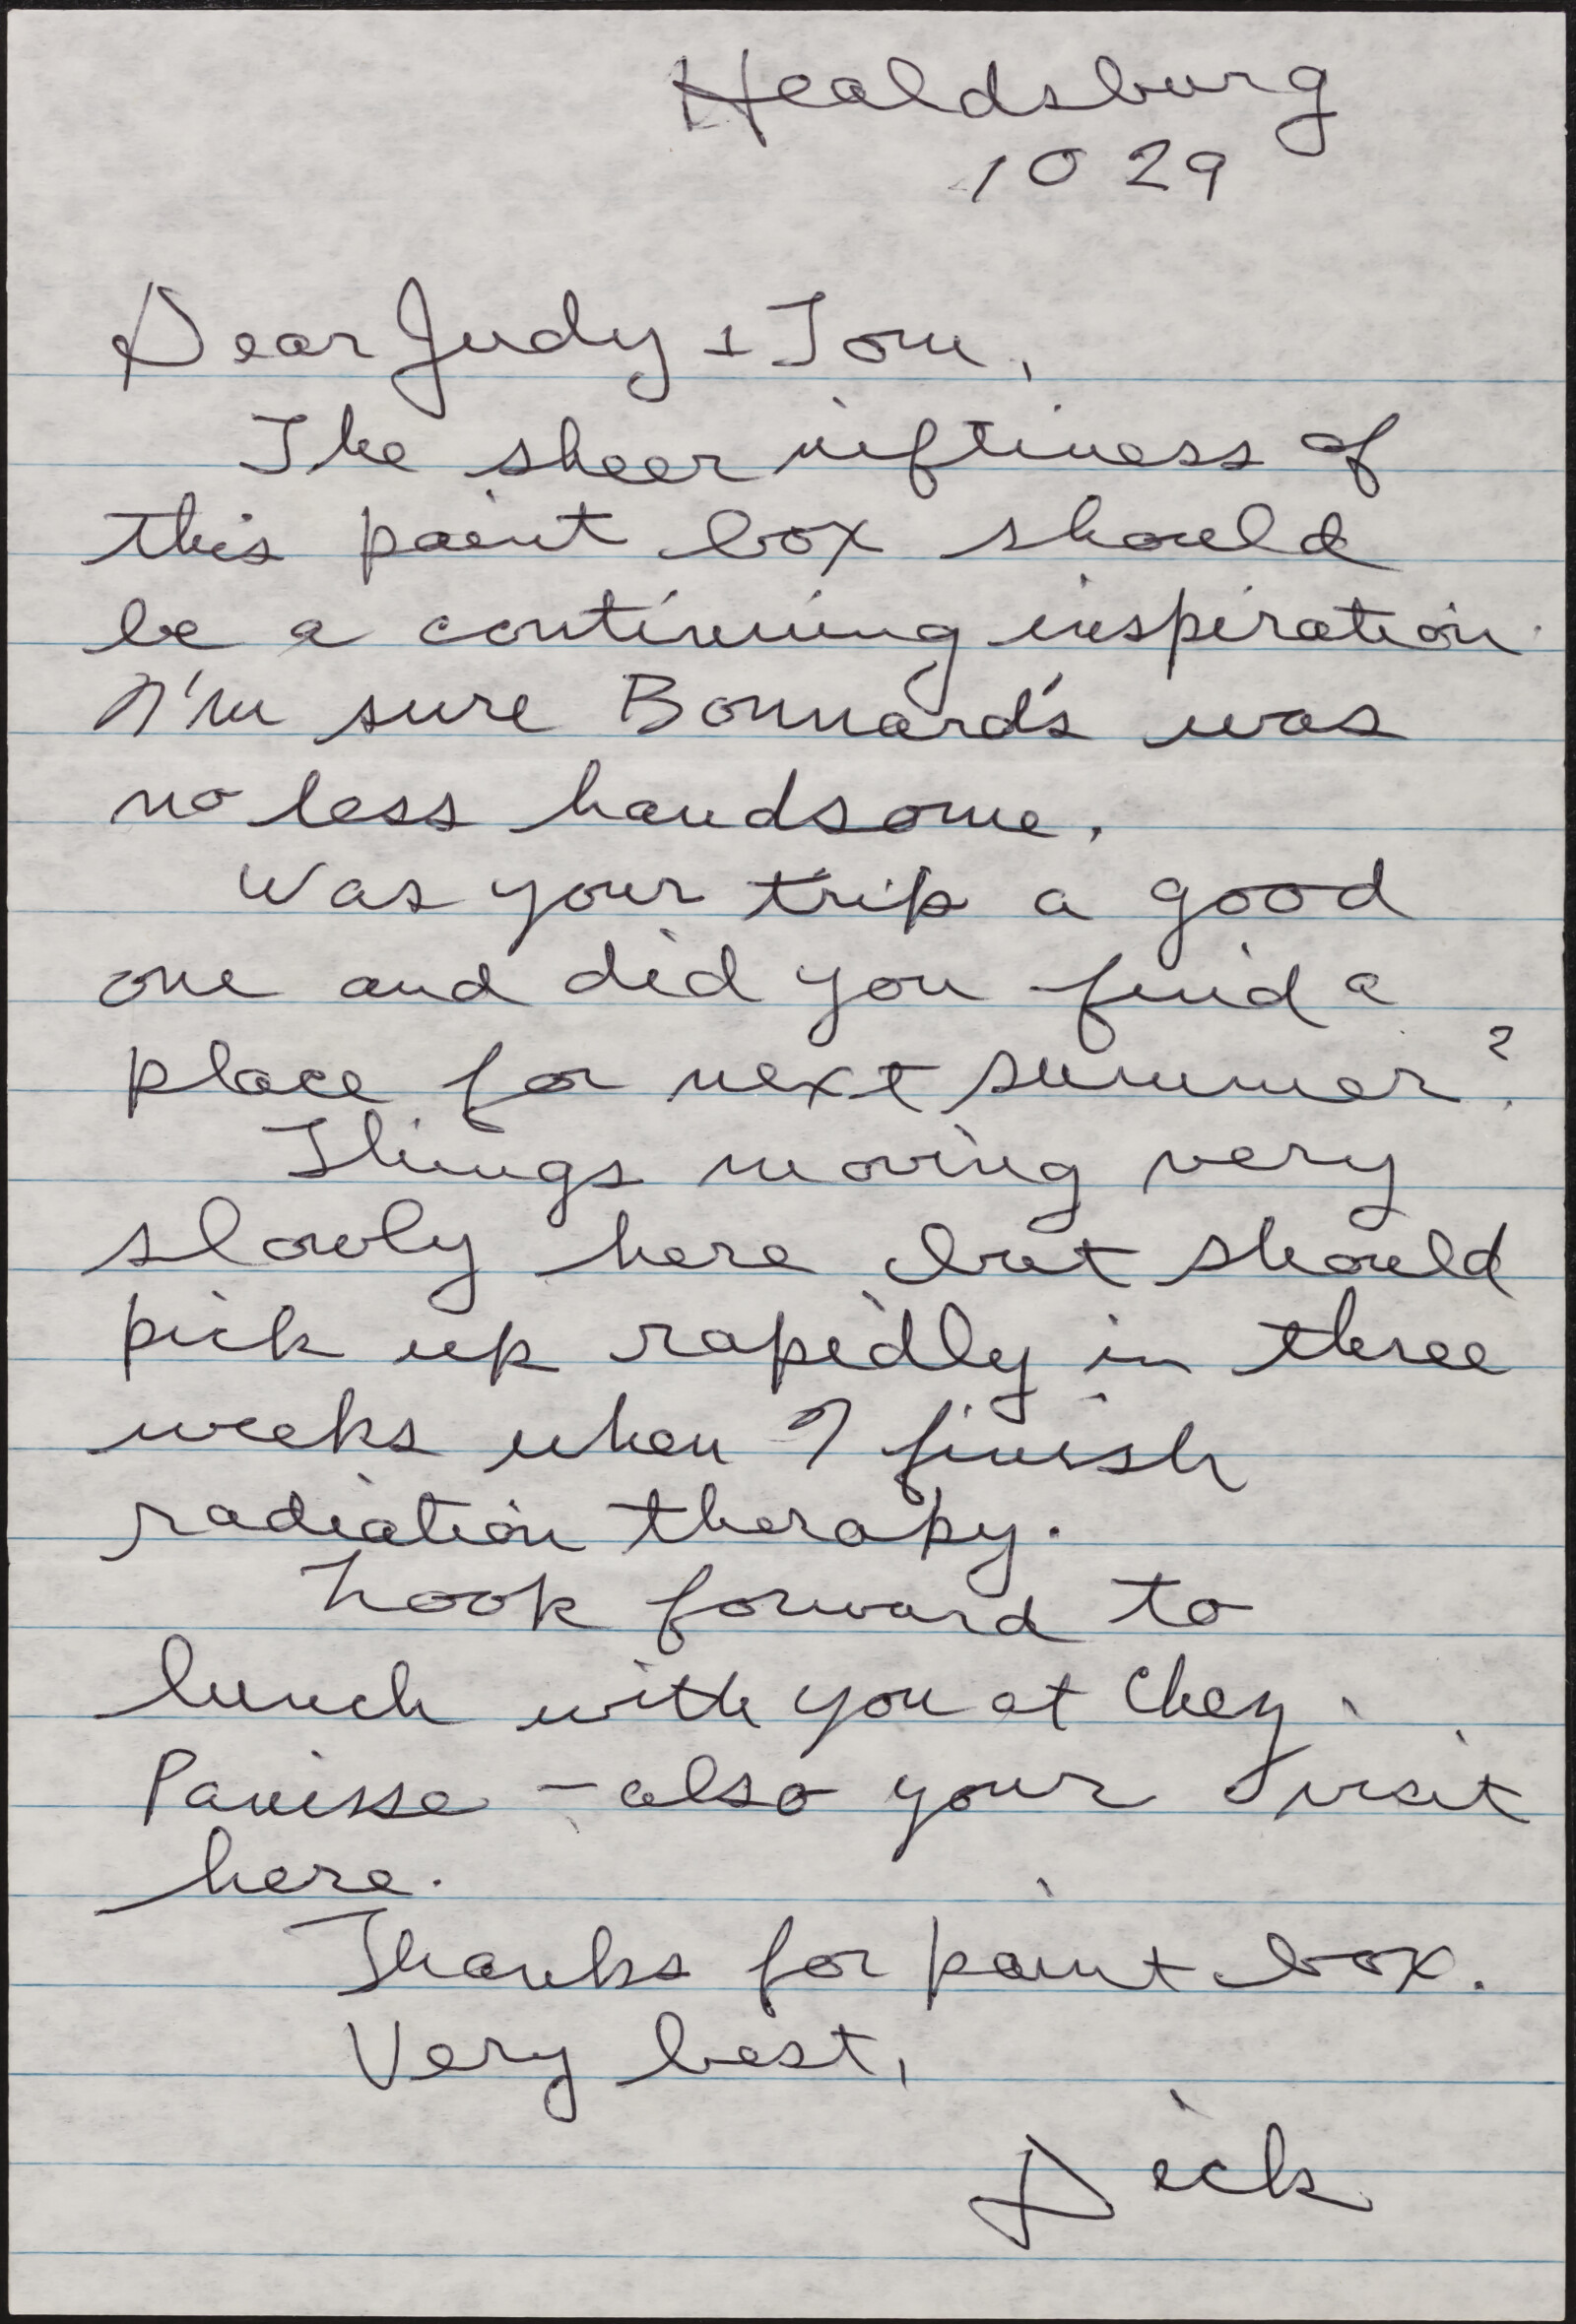 Healdsburg
10 29
Dear Judy + Tom,
The sheer niftiness of
this paint box should
be a continuing inspiration.
I'm sure Bonnard's was
no less handsome.
Was your trip a good
one and did you find a
place for next summer?
Things moving very
slowly here but should
pick up rapidly in three
weeks when I finish
radiation therapy.
Look forward to
lunch with you at Chez
Panisse - also your visit
here.
Thanks for paint box.
Very best,
Dick